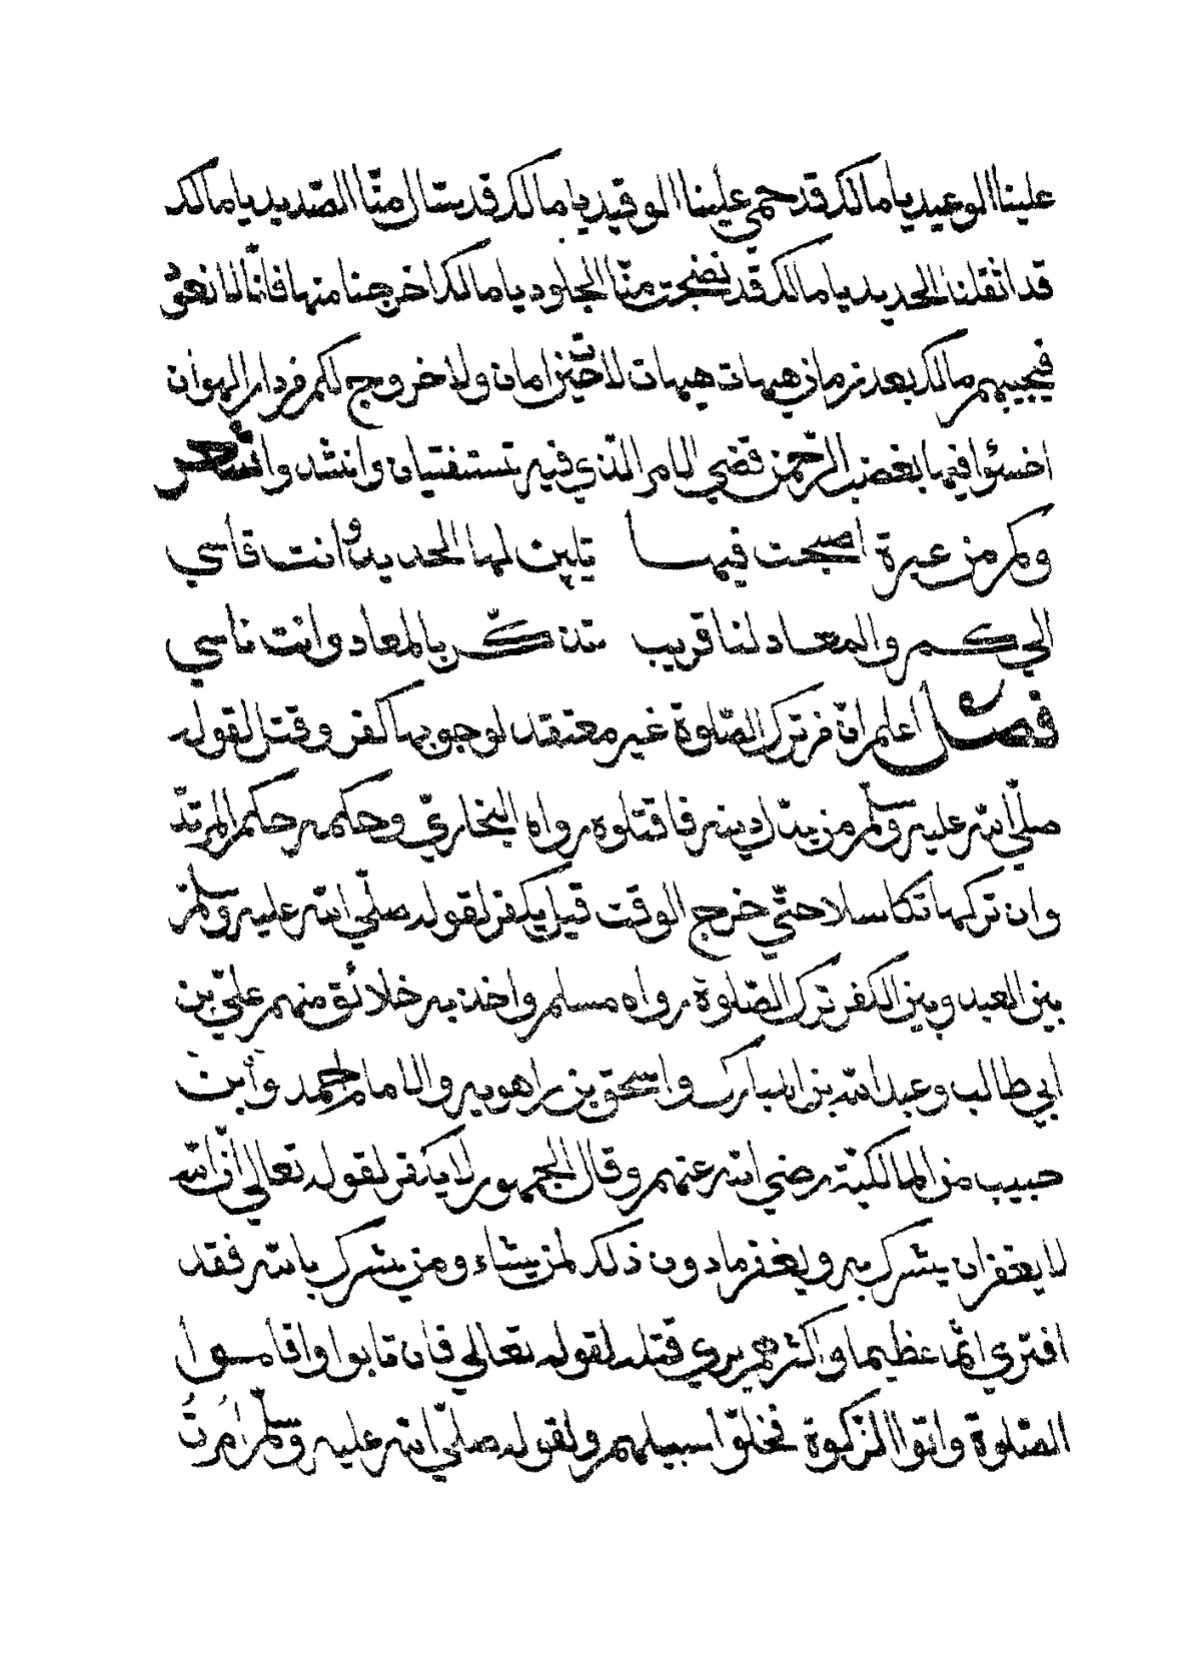 علينا الوعيد يا مالك قد حمي علينا الوقيد يا مالك قد سال منّا الصّديد يا مالك
قد اثقلنا الحديد يا مالك قد نضجت منّا الجلود يا مالك اخرجنا منها فانّا لا نعود
فيجيبهم مالك بعد زمان هيهات هيهات لات حين امان ولا خروج لكم من دار الهوان
اخسئوا فيها بغضب الرّحمن قضي الامر الّذي فيه تستفتيان وانشد وا
وكم من عبرة اصبحت فيها تلين لها الحديد وانت قاسي
الي كم والمعاد لنا قريب تذكّر بالمعاد وانت ناسي
فصل اعلم انّ من ترك الصّلوة غير معتقد لوجوبها كفر وقتل لقوله
صلّي الله عليه وسلّم من بدّل دينه فاقتلوه رواه البخاريّ وحكمه حكم المرتدّ
وان تركها تكاسلا حتّي خرج الوقت قيل يكفر لقوله صلّي الله عليه وسلّم
بين العبد وبين الكفر ترك الصّلوة رواه مسلم واخذ به خلائق منهم عليّ بن
ابي طالب وعبد الله بن المبارك واسحق بن راهويه والامام احمد وابن
حبيب من المالكيّة رضي الله عنهم وقال الجمهور لا يكفر لقوله تعالي انّ الله
لا يغفر ان يشرك به ويغفر ما دون ذلك لمن يشاء ومن يشرك بالله فقد
افتري اثما عظيما واكثرهم يري قتله لقوله تعالي فان تابوا واقاموا
الصّلوة واتوا الزكوة فخلّوا سبيلهم ولقوله صلّي الله عليه وسلّم امرتُ